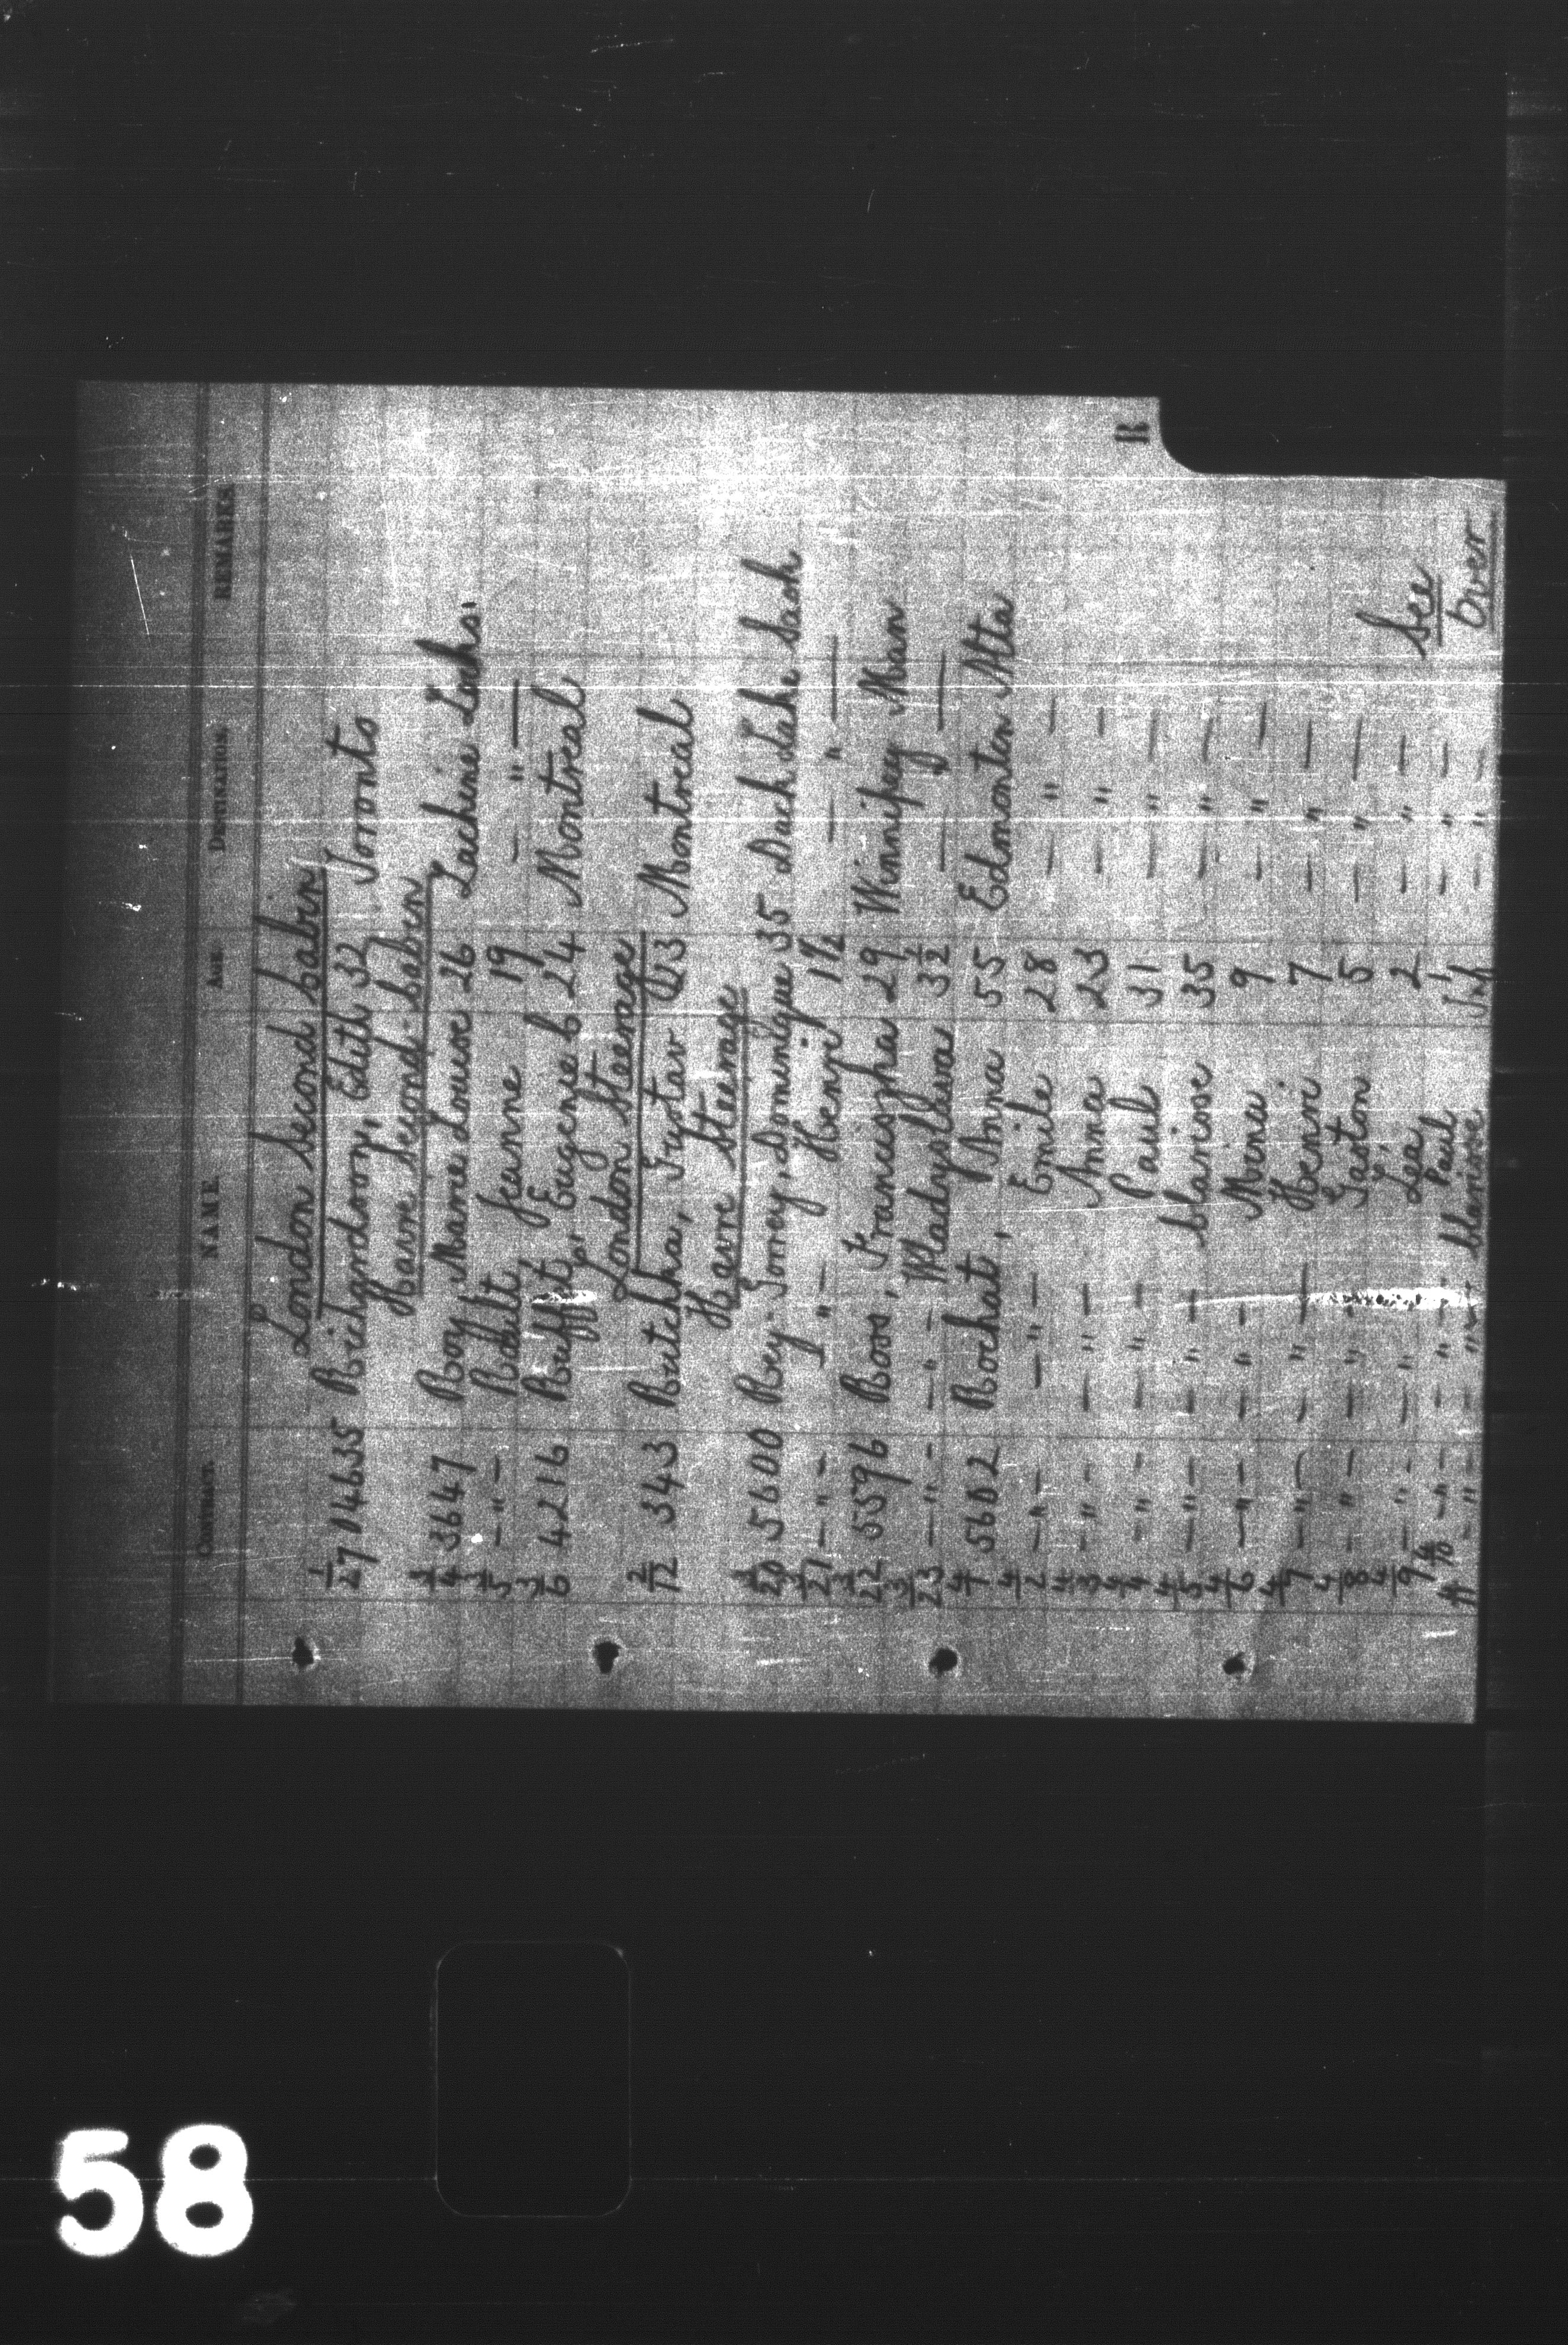 Contract. NAME AGE DESTINATION REMARKS
London Second Cabin
1/27 704635 Richardson, Edith 32 Toronto
Havre Second Cabin
3/4 3647 Roy, Marie Louise 26 Lachine Locks
3/5 — " — Rdult Jeanne 19 — " —
3/6 4216 Ruff Eugenie C 24 Montreal
London Steerage
2/12 343 Rutchka, Gustav 23 Montreal
Havre Steerage
3/20 5600 Rey-Gorrey, Dominique 35 Duck Lake Sask
3/21 — " — " — Henri 1½ — " —
3/22 5596 Roos, Franciszka 29 Winnipeg Man
3/23 — " — — " — Wladyslawa 3½ — " —
4/1 5602 Rochat, Anna 55 Edmonton Alta
4/2 — " — — " — Emile 28 — " —
4/3 — " — — " — Anna 23 — " —
4/4 — " — — " — Paul 31 — " —
4/5 — " — — " — Clarisse 35 — " —
4/6 — " — — " — Mina 9 — " —
4/7 — " — — " — Henri 7 — " —
4/8 — " — — " — Gaston 5 — " —
4/9 — " — — " — Lea 2 — " —
4/10 — " — — " — Paul 1 — " —
— " — — " — Clarisse Inf — " —
See
Over
R
58